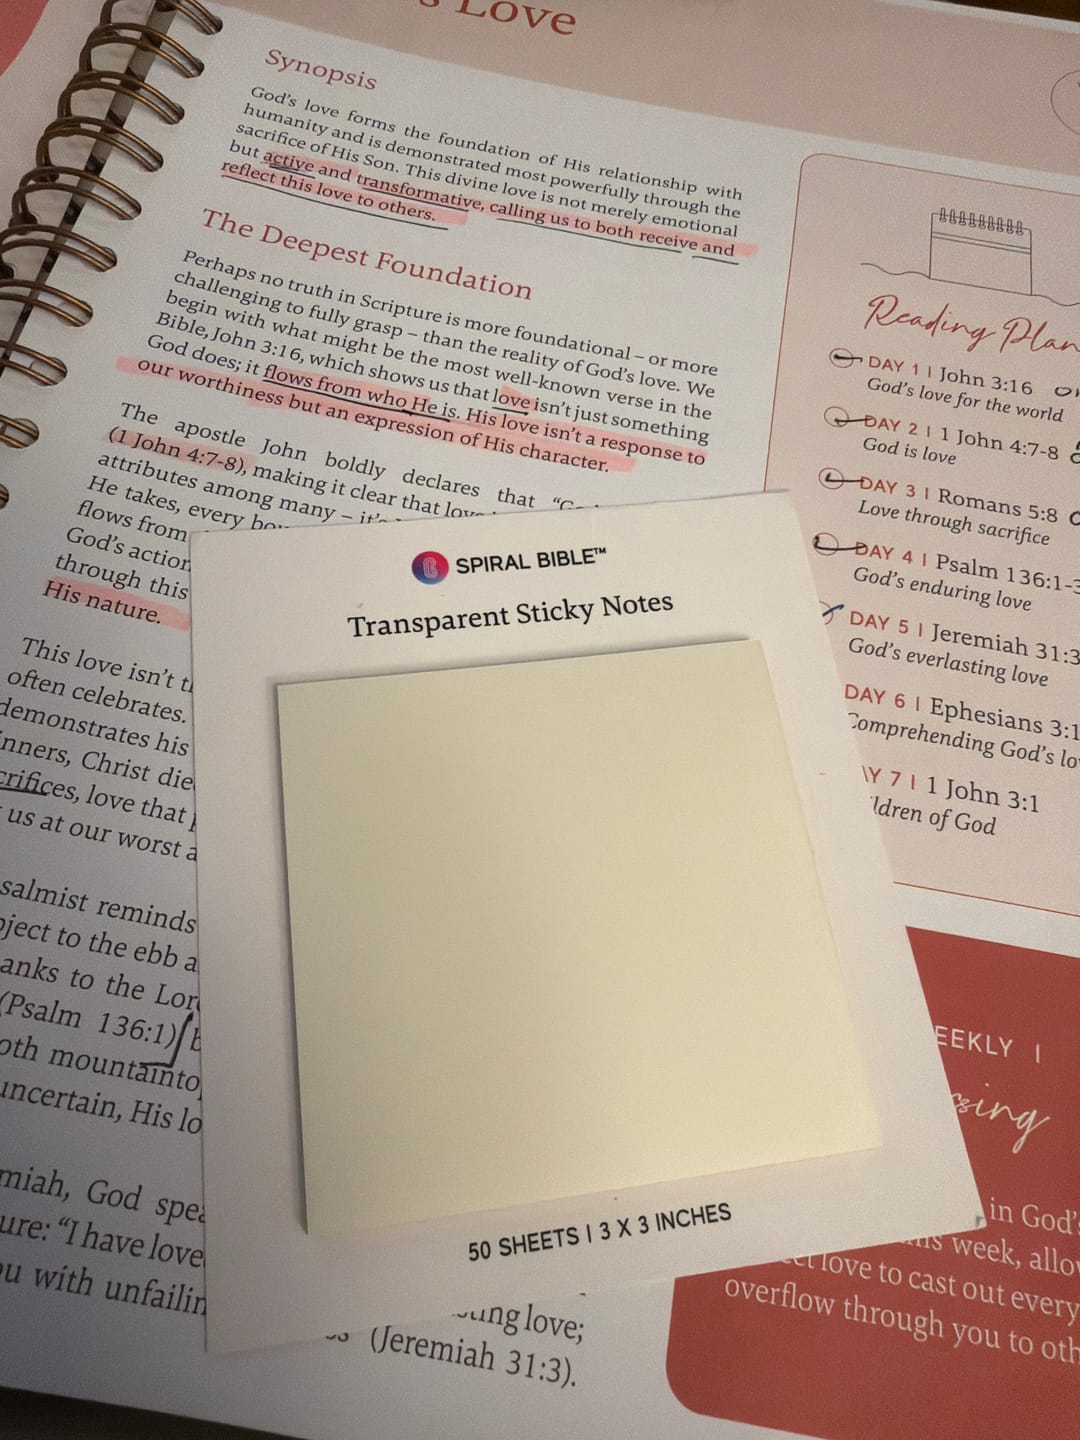 s Love
Synopsis
God's love forms the foundation of His relationship with
humanity and is demonstrated most powerfully through the
sacrifice of His Son. This divine love is not merely emotional
but active and transformative, calling us to both receive and
reflect this love to others.
The Deepest Foundation
Perhaps no truth in Scripture is more foundational – or more
challenging to fully grasp – than the reality of God's love. We
begin with what might be the most well-known verse in the
Bible, John 3:16, which shows us that love isn't just something
God does; it flows from who He is. His love isn't a response to
our worthiness but an expression of His character.
The apostle John boldly declares that
(1 John 4:7-8), making it clear that love
attributes among many – it's
He takes, every
flows from
God's action
through this
His nature.
This love isn't
often celebrates.
demonstrates his
inners, Christ die
crifices, love that
us at our worst a
salmist reminds
bject to the ebb a
anks to the Lor
(Psalm 136:1)
oth mountainto
uncertain, His lo
miah, God spea
ure: "I have love
ou with unfailin
ting love;
(Jeremiah 31:3).
SPIRAL BIBLE™
Transparent Sticky Notes
50 SHEETS | 3 X 3 INCHES
Reading Plan
DAY 1 | John 3:16
God's love for the world
DAY 2 | 1 John 4:7-8
God is love
DAY 3 | Romans 5:8
Love through sacrifice
DAY 4 | Psalm 136:1-3
God's enduring love
DAY 5 | Jeremiah 31:3
God's everlasting love
DAY 6 | Ephesians 3:1
Comprehending God's lo
AY 7 | 1 John 3:1
ldren of God
EEKLY |
ssing
in God's
this week, allo
love to cast out every
overflow through you to oth